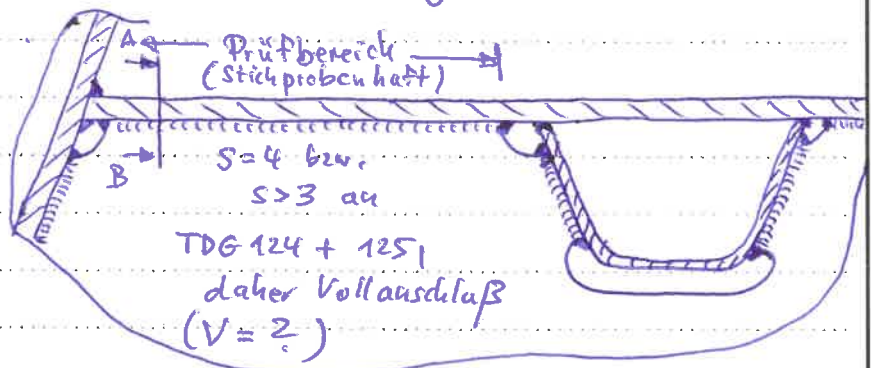 A
Prüfbereich
(Stichprobenhaft)
B
S=4 bzw.
S>3 an
TDG 124 + 125,
daher Vollanschluß
(V = 2)